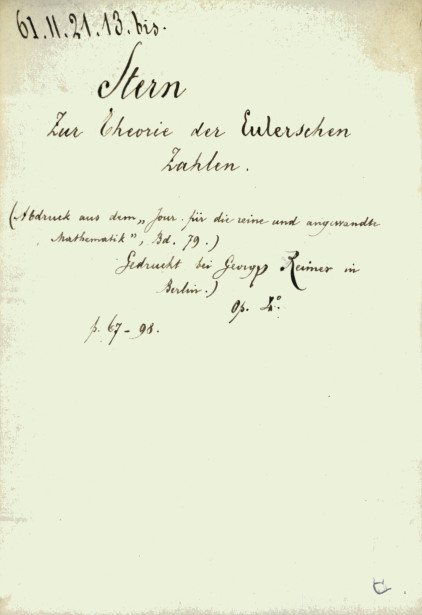 61.11.21.13.bis.
Stern
Zur Theorie der Eulerschen
Zahlen.
(Abdruck aus dem „Jour. für die reine und angewandte
Mathematik", Bd. 79.)
Gedruckt bei Georg Reimer in
Berlin.)
Op. 4°.
p. 67-98.